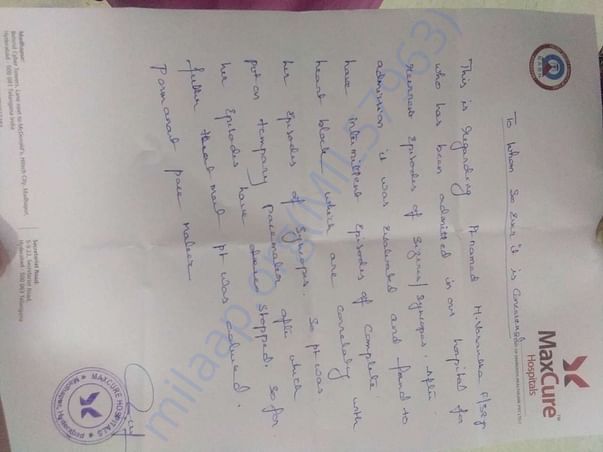 MaxCure™
Hospitals
To whom so ever it is concerned
This is regarding Pt named H. F/38y
who has been admitted in our hospital for
recurrent episodes of Seizures/Syncope. After
admission it was evaluated and found to
have intermittent episodes of complete
heart block which are correlating with
her episodes of Syncopes. So pt was
put on temporary pacemaker after which
her episodes have stopped. So for
further pt was adviced.
Permanent pace maker
MAXCURE HOSPITALS
milaap.org(MIL-57963)
Madhapur:
Behind Cyber Towers, Lane next to McDonald's, Hitech City, Madhapur,
Hyderabad - 500 081 Telangana India
Secretariat Road:
5-9-22, Secretariat Road,
Hyderabad - 500 063 Telangana